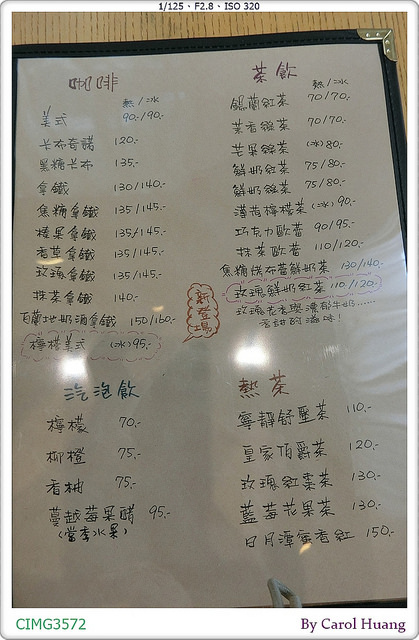 1/125、F2.8、ISO 320
咖啡
熱/冰
美式 90.-/90.-
卡布奇諾 120.-
黑糖卡布 135.-
拿鐵 130/140.-
焦糖拿鐵 135/145.-
榛果拿鐵 135/145.-
香草拿鐵 135/145.-
玫瑰拿鐵 135/145.-
抹茶拿鐵 140.-
百蘭地奶酒拿鐵 150/160.-
檸檬美式 (冰)95.-
新登場
茶飲
熱/冰
錫蘭紅茶 70/70.-
茉香綠茶 70/70.-
芒果綠茶 (冰)80.-
鮮奶紅茶 75/80.-
鮮奶綠茶 75/80.-
薄荷檸檬茶 (冰)90.-
巧克力歐蕾 90/95.-
抹茶歐蕾 110/120.-
焦糖烤布蕾鮮奶茶 130/140.-
玫瑰鮮奶紅茶 110/120.-
玫瑰花香與濃郁牛奶......
香甜的滋味!
汽泡飲
檸檬 70.-
柳橙 75.-
香柚 75.-
蔓越莓果醋 95.-
(當季水果)
熱茶
寧靜舒壓茶 110.-
皇家伯爵茶 120.-
玫瑰紅棗茶 130.-
藍莓花果茶 130.-
日月潭蜜香紅 150.-
CIMG3572
By Carol Huang